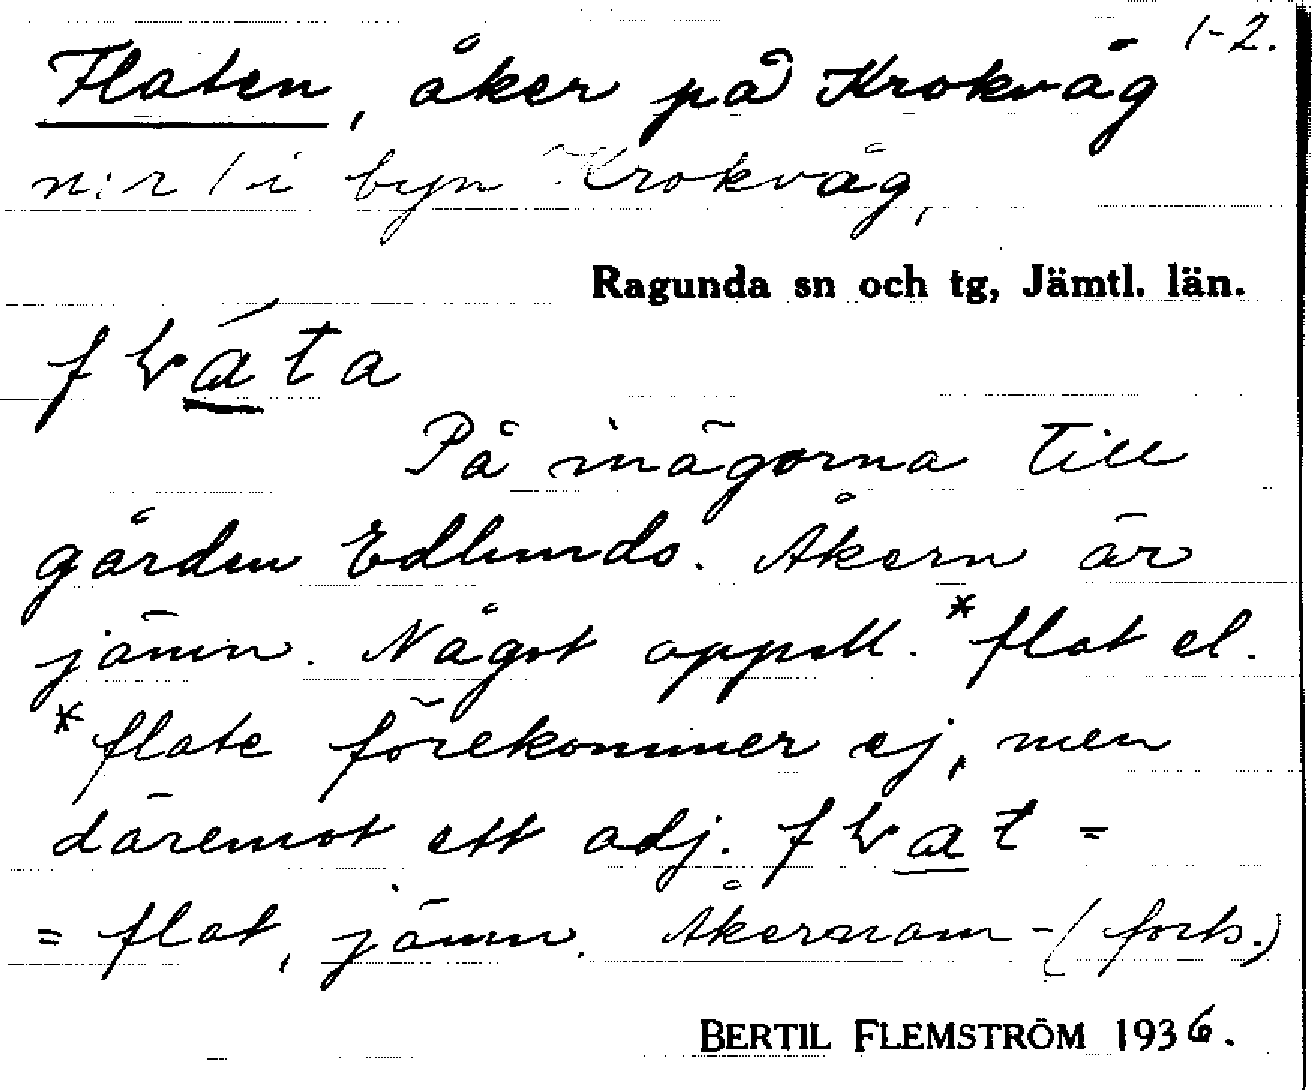 1-2.
Flaten, åker på Krokvåg
n:r 1 i byn Krokvåg,
Ragunda sn och tg, Jämtl. län.
På inägorna till
gården Edlunds. Åkern är
jämn. Något appell. *flat el.
*flate förekommer ej, men
däremot ett adj. =
= flat, jämn. Åkernam- (forts.)
BERTIL FLEMSTRÖM 1936.